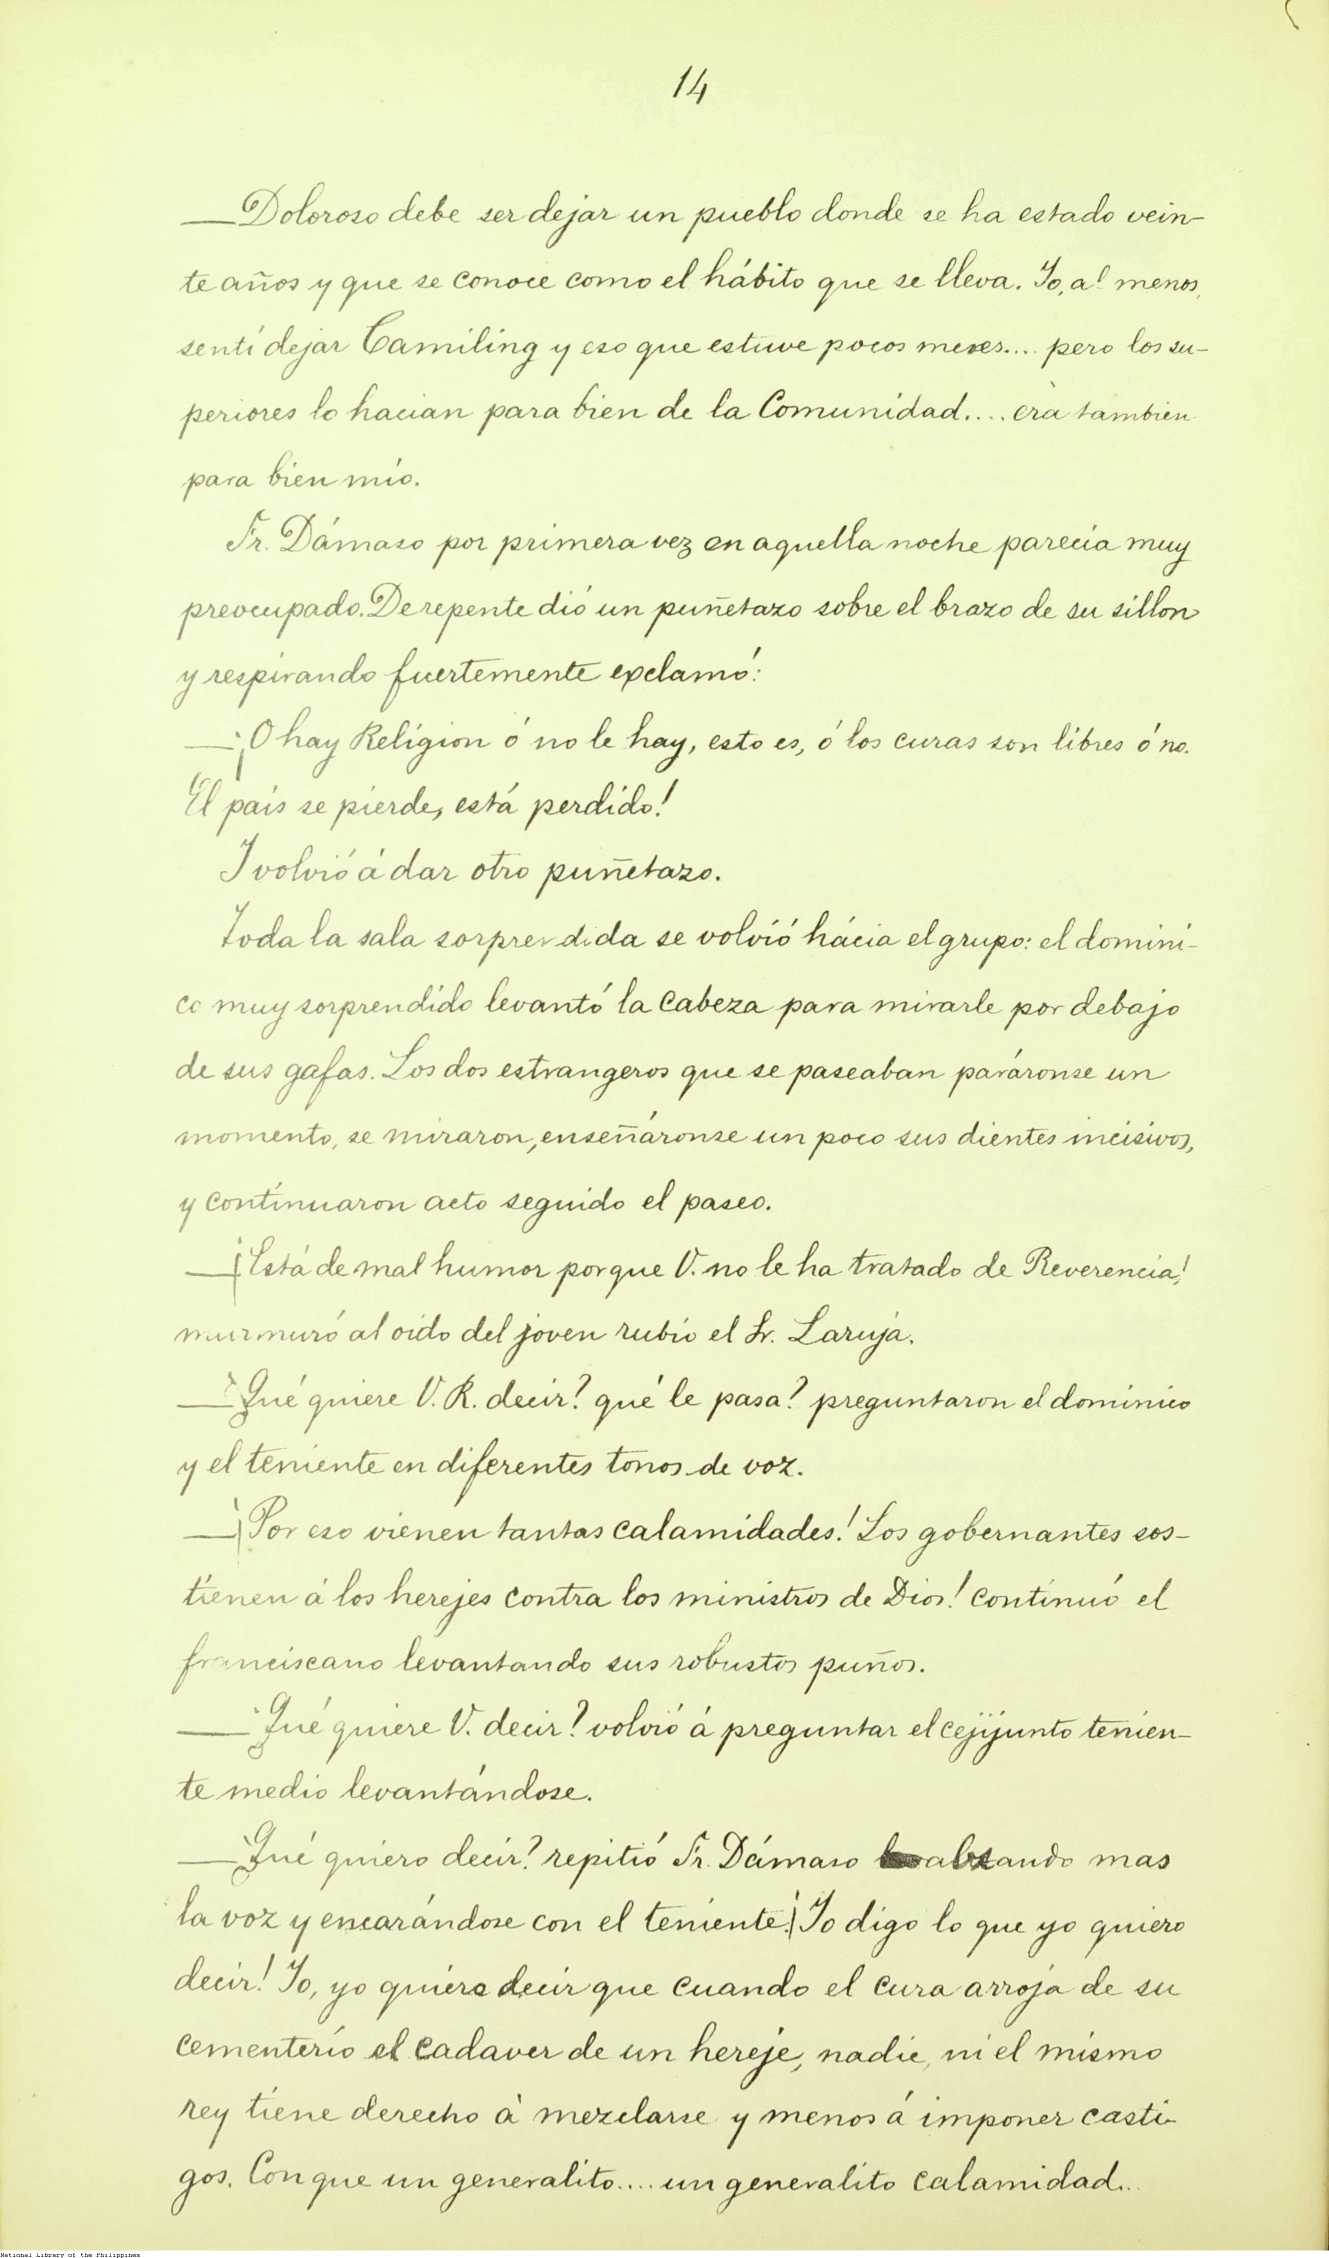 14
—Doloroso debe ser dejar un pueblo donde se ha estado vein-
te años y que se conoce como el hábito que se lleva. Yo, al menos,
sentí dejar Camiling y eso que estuve pocos meses.... pero los su-
periores lo hacian para bien de la Comunidad.... era tambien
para bien mío.
Fr. Dámaso por primera vez en aquella noche parecia muy
preocupado. De repente dió un puñetazo sobre el brazo de su sillon
y respirando fuertemente exclamó:
—¡O hay Religion ó no le hay, esto es, ó los curas son libres ó no.
El país se pierde, está perdido!
Y volvió á dar otro puñetazo.
Toda la sala sorprendida se volvió hácia el grupo: el domini-
co muy sorprendido levantó la cabeza para mirarle por debajo
de sus gafas. Los dos estrangeros que se paseaban paráronse un
momento, se miraron, enseñáronse un poco sus dientes incisivos,
y continuaron acto seguido el paseo.
—¡Está de mal humor porque V. no le ha tratado de Reverencia!
murmuró al oido del joven rubio el Sr. Laruja.
—¿Qué quiere V. R. decir? qué le pasa? preguntaron el dominico
y el teniente en diferentes tonos de voz.
—¡Por eso vienen tantas calamidades! Los gobernantes sos-
tienen á los herejes contra los ministros de Dios! continuó el
franciscano levantando sus robustos puños.
—¿Qué quiere V. decir? volvió á preguntar el cejijunto tenien-
te medio levantándose.
—¿Qué quiero decir? repitió Fr. Dámaso alzando mas
la voz y encarándose con el teniente. ¡Yo digo lo que yo quiero
decir! Yo, yo quiero decir que cuando el cura arroja de su
cementerio el cadaver de un hereje, nadie, ni el mismo
rey tiene derecho á mezclarse y menos á imponer casti-
gos. Con que un generalito.... un generalito calamidad...
National Library of the Philippines